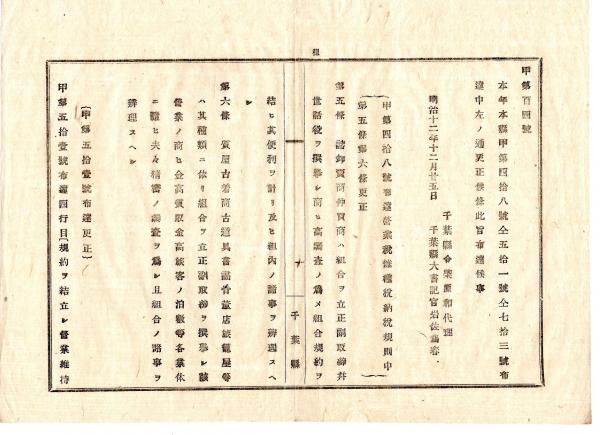 甲第百四號
本年本縣甲第四拾八號仝五拾一號仝七拾三號布
達中左ノ通更正候條此旨布達候事
明治十二年十二月廿五日
千葉縣令柴原和代理
千葉縣大書記官岩佐為春
甲第四拾八號布達營業稅雜種稅納稅規則中
第五條第六條更正
第五條 諸卸賣商仲買商ハ組合ヲ立正副取締幷
世話役ヲ撰擧シ商ヒ高調査ノ爲メ組合規約ヲ
千葉縣
結ヒ其便利ヲ計リ及ヒ組內ノ諸事ヲ辨理スヘ
シ
第六條 質屋古着商古道具書畵骨董店旅籠屋等
ハ其種類ニ依リ組合ヲ立正副取締ヲ撰擧シ該
營業ノ商ヒ金高質取金高旅客ノ泊數等各業休
ニ雛ヒ夫々精密ノ調査ヲ爲シ且組合ノ諸事ヲ
辨理スヘシ
〔甲第五拾壹號布達更正〕
甲第五拾壹號布達四行目〔規約ヲ結立シ營業維持